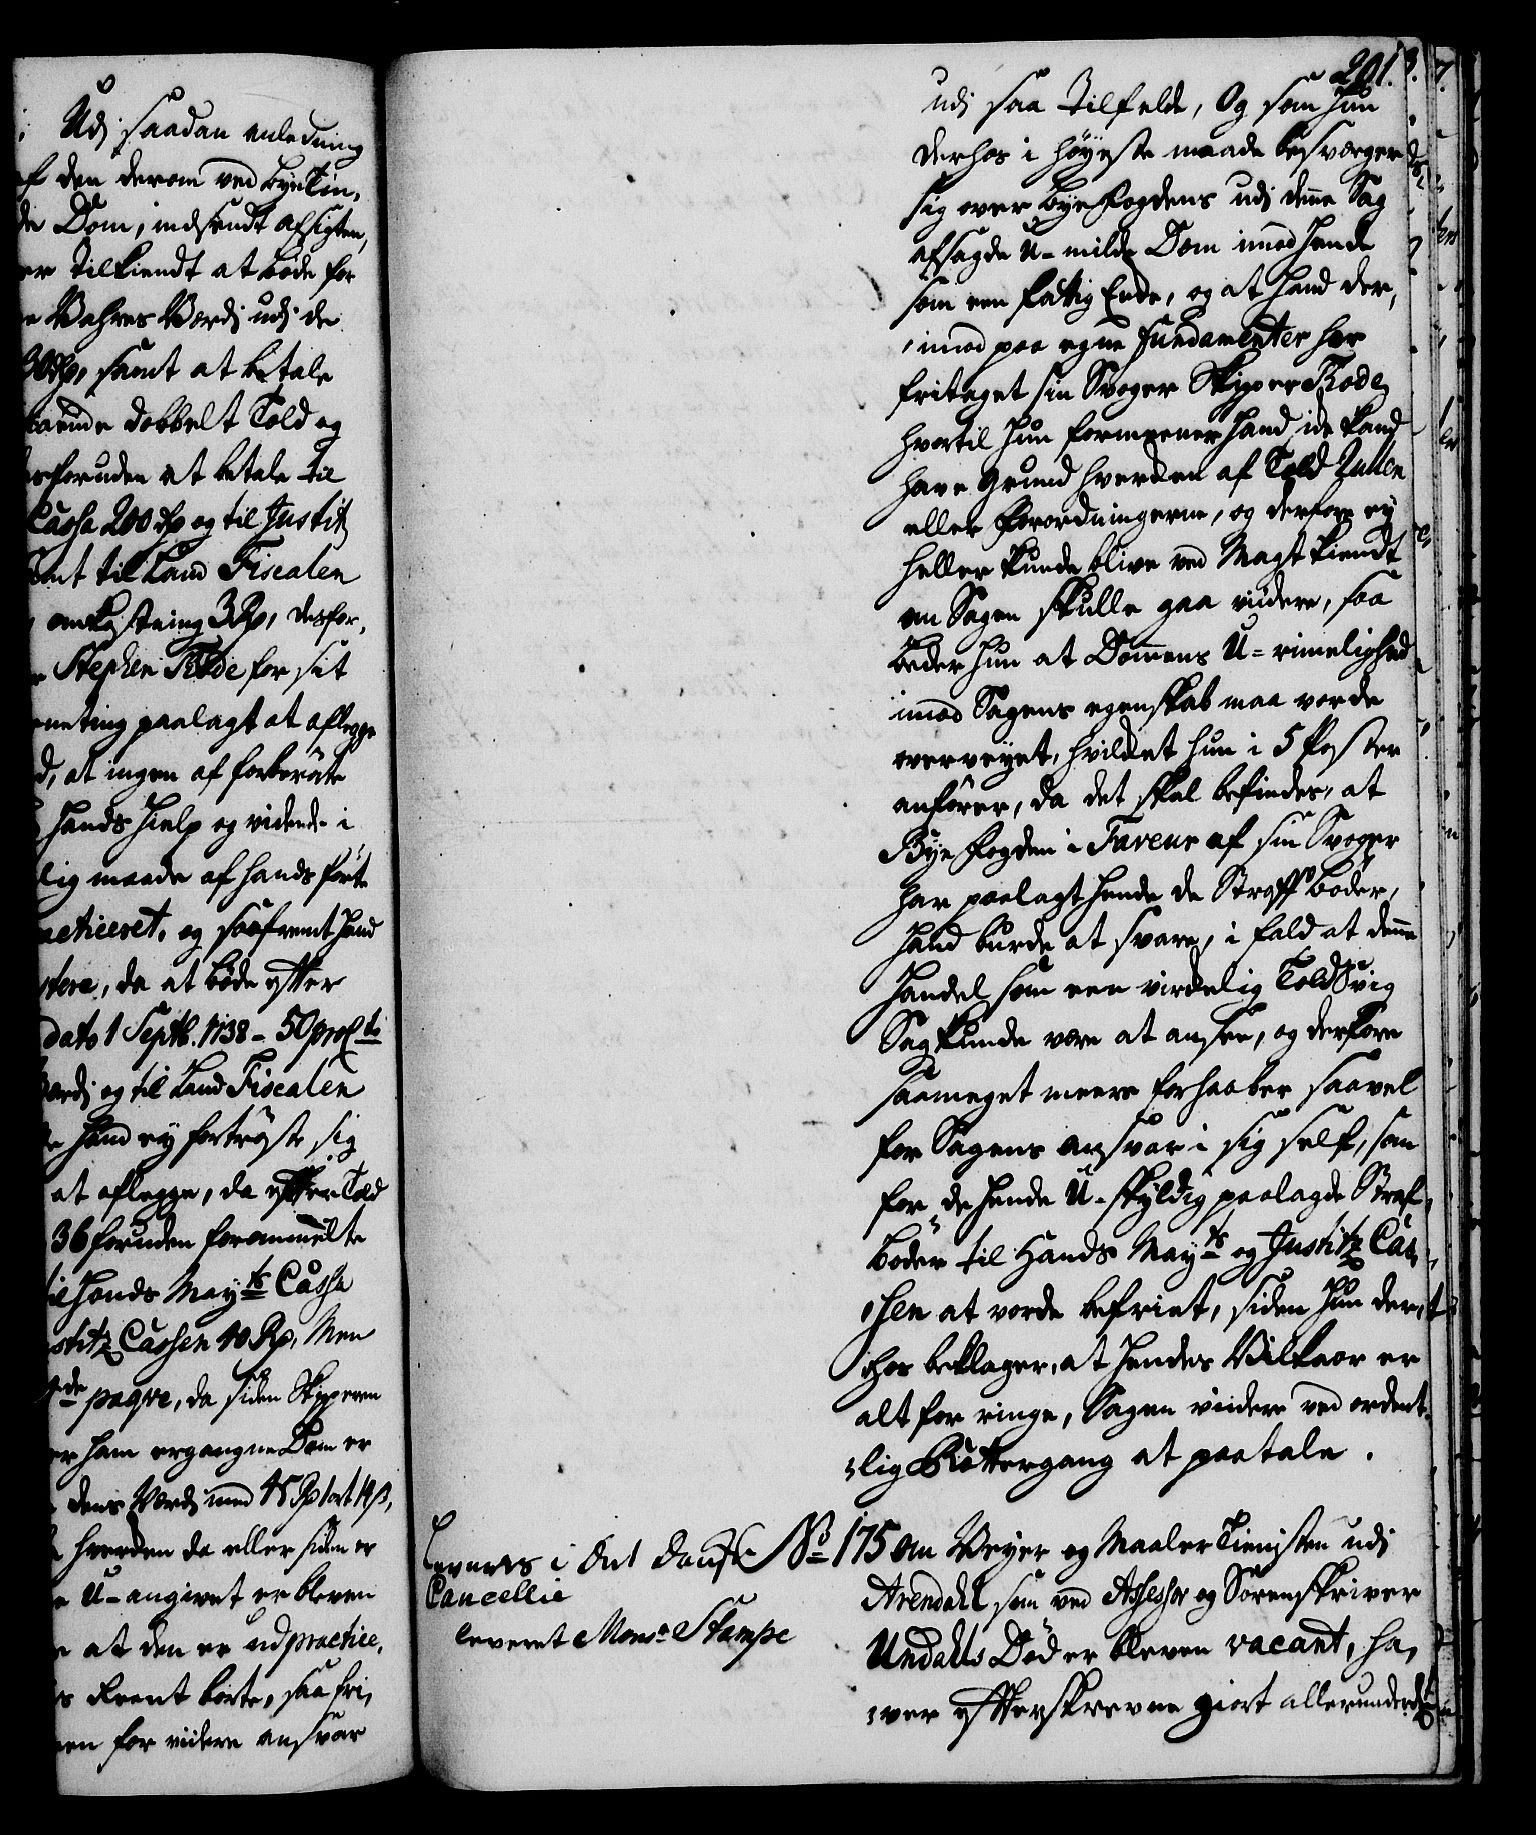 Udi saadan anledning
f den derom ved bye Tin,
de Dom, indsendt afsigten,
er tilkiendt at bøde for
e Vahres Værdi udi de
30 Rd, samt at betale
baende dobbelt Told og
esforuden at betale til
Cassa 200 Rd og til Justitz
samt til Land Fiscalen
omkostning 3 Rd, desfor,
Stephen Tode for sit
neting paalagt at aflegge
d, at ingen af forberørte
hands hielp og vidende i
lig maade af hands
acticeret, og saafremt hand
stere, da at bøde efter
dato 1 Septb. 1738 - 50 pro Cto
ærdi og til Land Fiscalen
e hand ey fortrøste sig
at aflegge, da efter Told
36 foruden forommelte
til Hands Mayts Cassa
stitz Cassen 40 Rd, Men
de paqve, da siden Skipperen
er ham ergangne Dom er
dens Værdi med 45 Rd 1 ort 14 s,
hverken da eller siden er
e U-angivet er bleven
e at den er udpractice,
s Krent borte, saa fri,
en for videre ansvar
201.
udi saa tilfelde, Og som hun
derhos i høyeste maade besværger
sig over byefogdens udi denne Sag
afsagde U-milde Dom imod hende
som een fattig Enke, og at hand der,
imod paa egne fundamenter har
fritaget sin Svoger Skipper Tode,
hvortil hun formeener hand icke kand
have grund hverken af Told Rullen
eller forordningerne, og derfore ey
heller kunde blive ved Magt kiendt
om Sagen skulle gaa viidere, saa
beder hun at Dommens U-rimelighed
imod Sagens egenskab maa vorde
overveyet, hvilket hun i 5 Poster
anfører, da det skal befindes, at
Bye fogden i Faveur af sin Svoger
har paalagt hende de Straff bøder,
hand burde at svare, i fald at denne
Handel som een virkelig Told Svig
Sag kunde være at ansee, og derfore
saameget meere forhaaber saavel
for Sagens ansvar i sig self, som
for de hende U-skyldig paalagde Straf,
bøder til Hands Mayts og Justitz Cas,
sen at vorde befriet, siden hun der,
hos beklager, at hendes Vilkaar er
alt for ringe, Sagen viidere ved ordent,
lig Rettergang at paatale.
Leveres i det danske
Cancellie
leveret Monsr Stampe
No 175 Om Veyer og Maaler Tienisten udi
Arendahl som ved Assessor og Sorenskriver
Undahls Død er bleven vacant, ha,
ver efterskrevne giort allerunderd